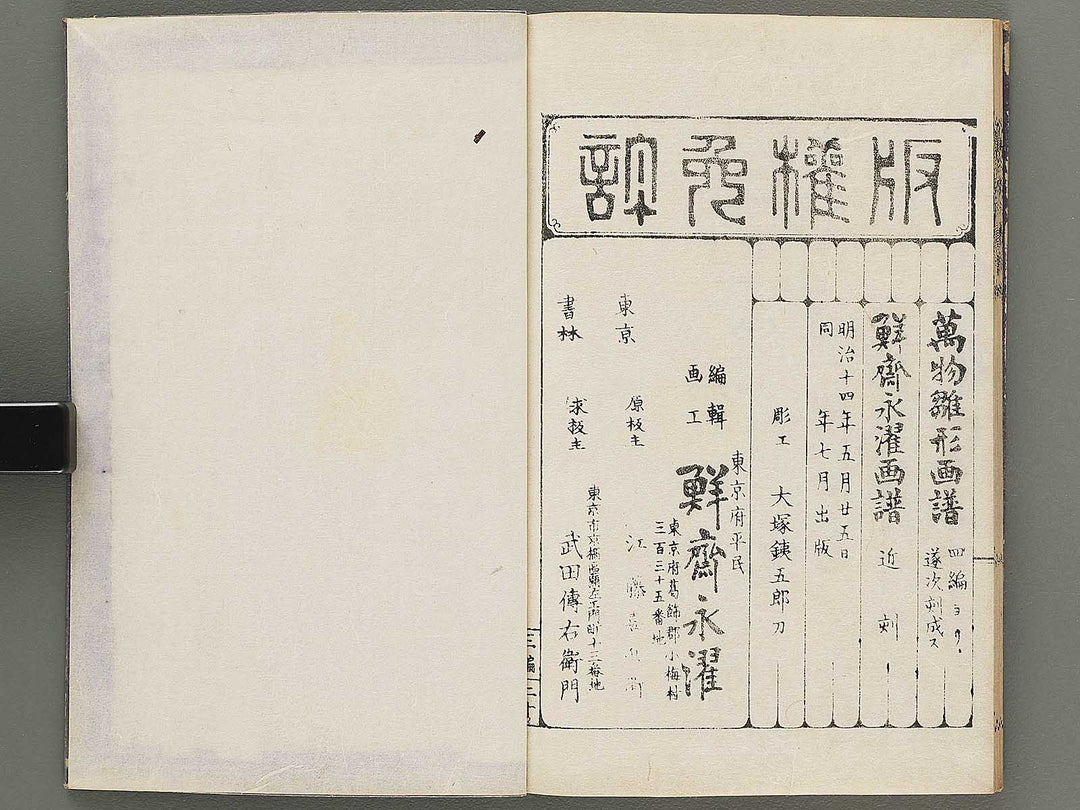 版権免許
萬物雛形画譜
四編ヨリ
逐次刻成ス
鮮齋永濯画譜 近刻
明治十四年五月廿五日
同 年七月出版
彫工 大塚銕五郎刀
東京府平民
編輯
画工
鮮齋永濯
東京府葛飾郡小梅村
三百三十五番地
東京
原板主
江藤喜兵衛
書林
求板主
東京市京橋區南左エ門町十三番地
武田傳右衛門
三編